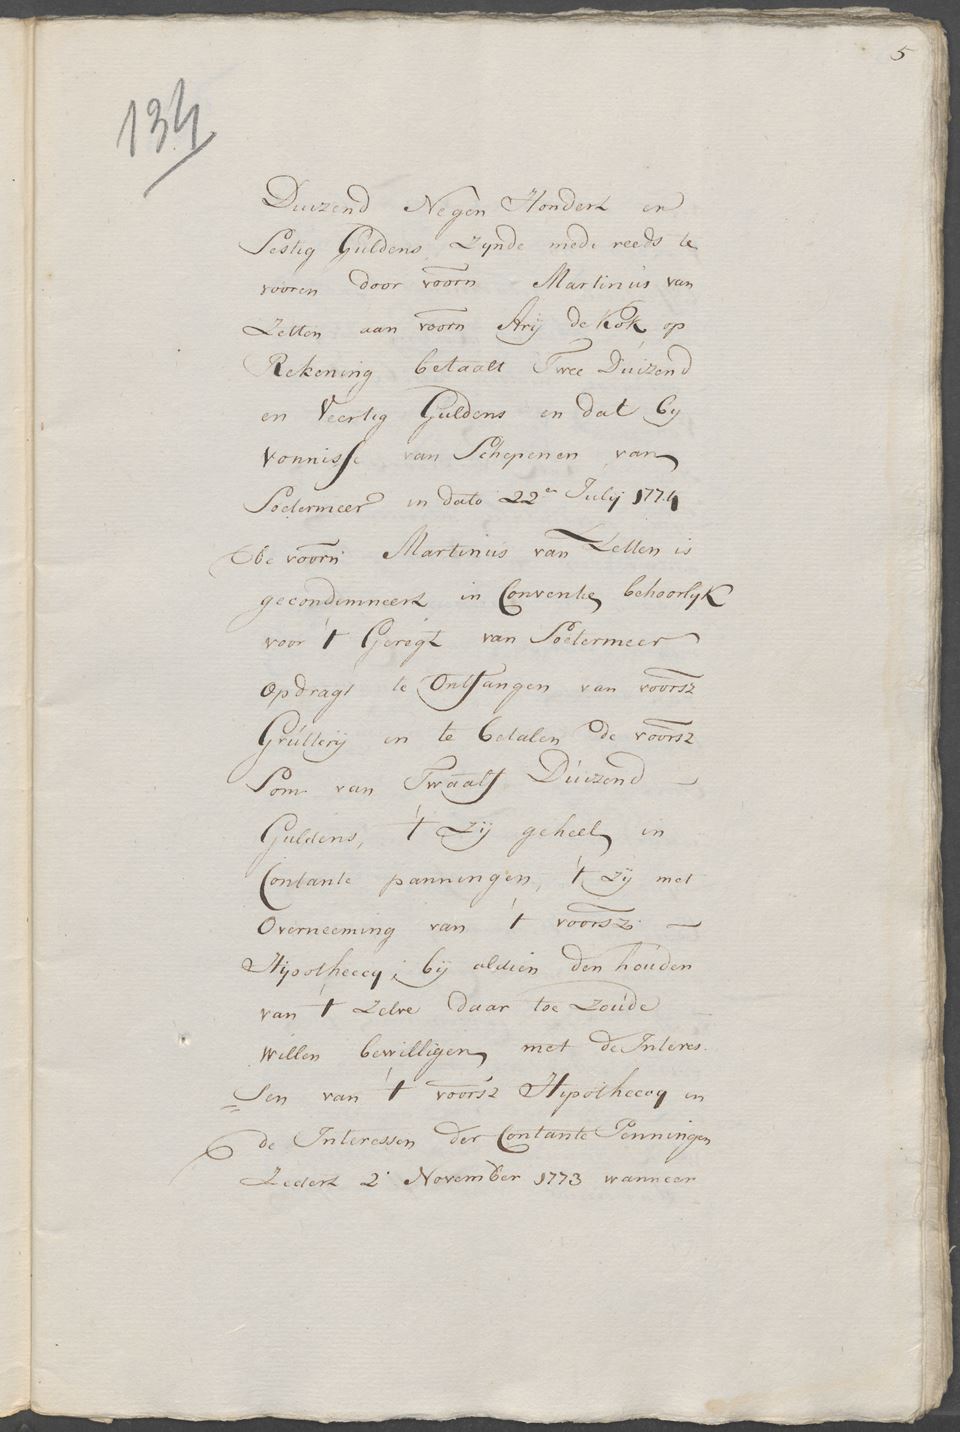 5
134
Duizend Negen Hondert en
Sestig Guldens, zynde mede reeds te
vooren door voorn Martinus van
Zetten aan voorn Arij de Kok op
Rekening betaalt Twee Duizend
en Veertig Guldens en dat by
vonnisse van Schepenen van
Soetermeer in dato 22en July 1774
de voorn Martinus van Zetten is
gecondemneert in Conventie behoorlyk
voor 't Geregt van Soetermeer
Opdragt te Ontfangen van voorsz
Grutterij en te betalen de voorsz
Som van Twaalf Duizend —
Guldens, 't zij geheel in
Contante panningen, 't zij met
Overneeming van 't voorsz: —
Hijpotheecq; bij aldien den houden
van 't zelve daar toe zoude
willen bewilligen met de Interes
=sen van 't voorsz Hipotheecq en
de Interessen der Contante Penningen
Zedert 2: November 1773 wanneer